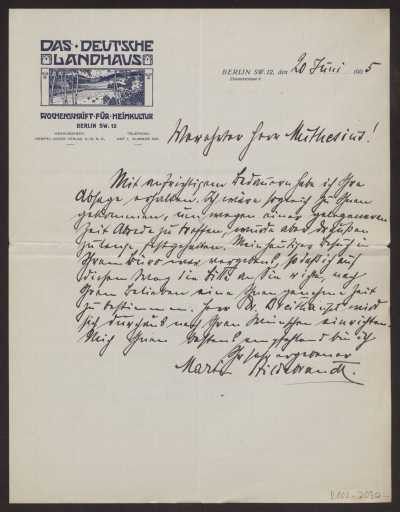 DAS · DEUTSCHE
LANDHAUS
WOCHENSCHRIFT · FÜR · HEIMKULTUR
BERLIN SW. 12
BERLIN SW. 12, den 20 Juni 1905
Zimmerstrasse
Verehrter Herr Muthesius!
Mit aufrichtigem Bedauern habe ich Ihre
Absage erhalten. Ich wäre sogleich zu Ihnen
gekommen, um wegen einer gelegeneren
Zeit Abrede zu treffen, wurde aber draußen
zu lange festgehalten. Mein heutiger Besuch in
Ihrem Büro war vergebens, so daß ich auf
diesem Weg die Bitte an Sie richte nach
Ihrem Belieben eine Ihnen genehme Zeit
zu bestimmen. Herr Dr. wird
sich durchaus nach Ihren Wünschen einrichten.
Mich Ihnen bestens empfehlend bin ich
Ihr sehr ergebener
Martin Hildebrandt.